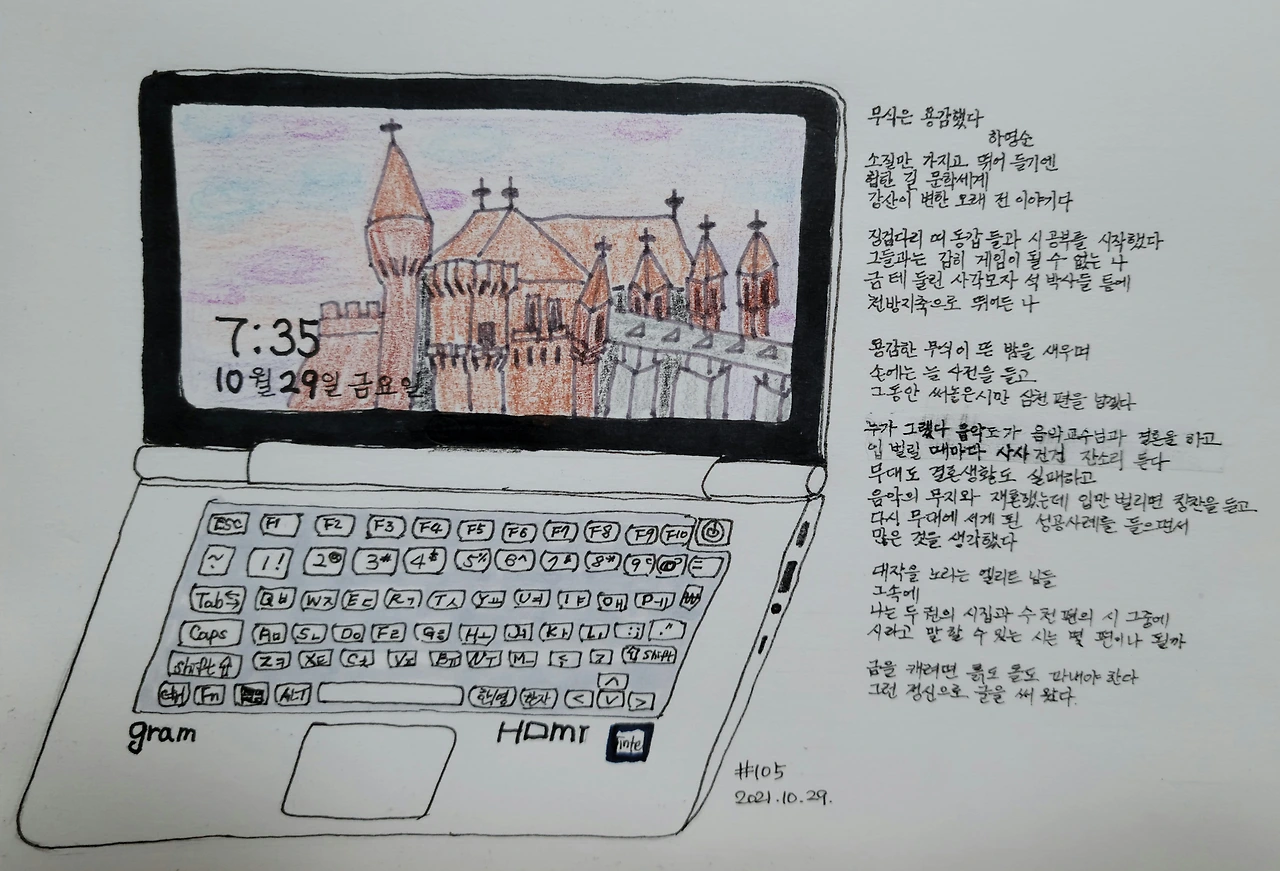 7:35
10월 29일 금요일
ESC F1 F2 F3 F4 F5 F6 F7 F8 F9 F10
~ 1! 2@ 3# 4$ 5% 6^ 7& 8* 9(
Tab Qㅂ Wㅈ Eㄷ Rㄱ Tㅅ Yㅛ Uㅕ Iㅑ Oㅐ Pㅔ
Caps Aㅁ Sㄴ Dㅇ Fㄹ Gㅎ Hㅗ Jㅓ Kㅏ Lㅣ ;: ."
Shift Zㅋ Xㅌ Cㅊ Vㅍ Bㅠ Nㅜ M Shift
Ctrl Fn ALT 한/영 한자 < ∨ > ∧
gram
HDMI
intel
#105
2021.10.29.
무식은 용감했다
하영순
소질만 가지고 뛰어 들기엔
험한 길 문학세계
강산이 변한 오래 전 이야기다
징검다리 띠 동갑들과 시공부를 시작했다
그들과는 감히 게임이 될 수 없는 나
금 테 둘린 사각모자 석 박사들 틈에
천방지축으로 뛰어든 나
용감한 무식이 뜬 밤을 새우며
손에는 늘 사전을 들고
그동안 써놓은 시만 삼천 편을 넘겼다
누가 그랬다 음악도가 음악교수님과 결혼을 하고
입 벌릴 때마다 사사건건 잔소리 듣다
무대도 결혼생활도 실패하고
음악의 무지와 재혼했는데 입만 벌리면 칭찬을 듣고
다시 무대에 서게 된 성공사례를 들으면서
많은 것을 생각했다
대작을 노라는 엘리트 님들
그속에
나는 두 권의 시집과 수 천 편의 시 그중에
시라고 말 할 수 있는 시는 몇 편이나 될까
금을 캐려면 흙도 돌도 파내야 한다
그런 정신으로 글을 써 왔다.